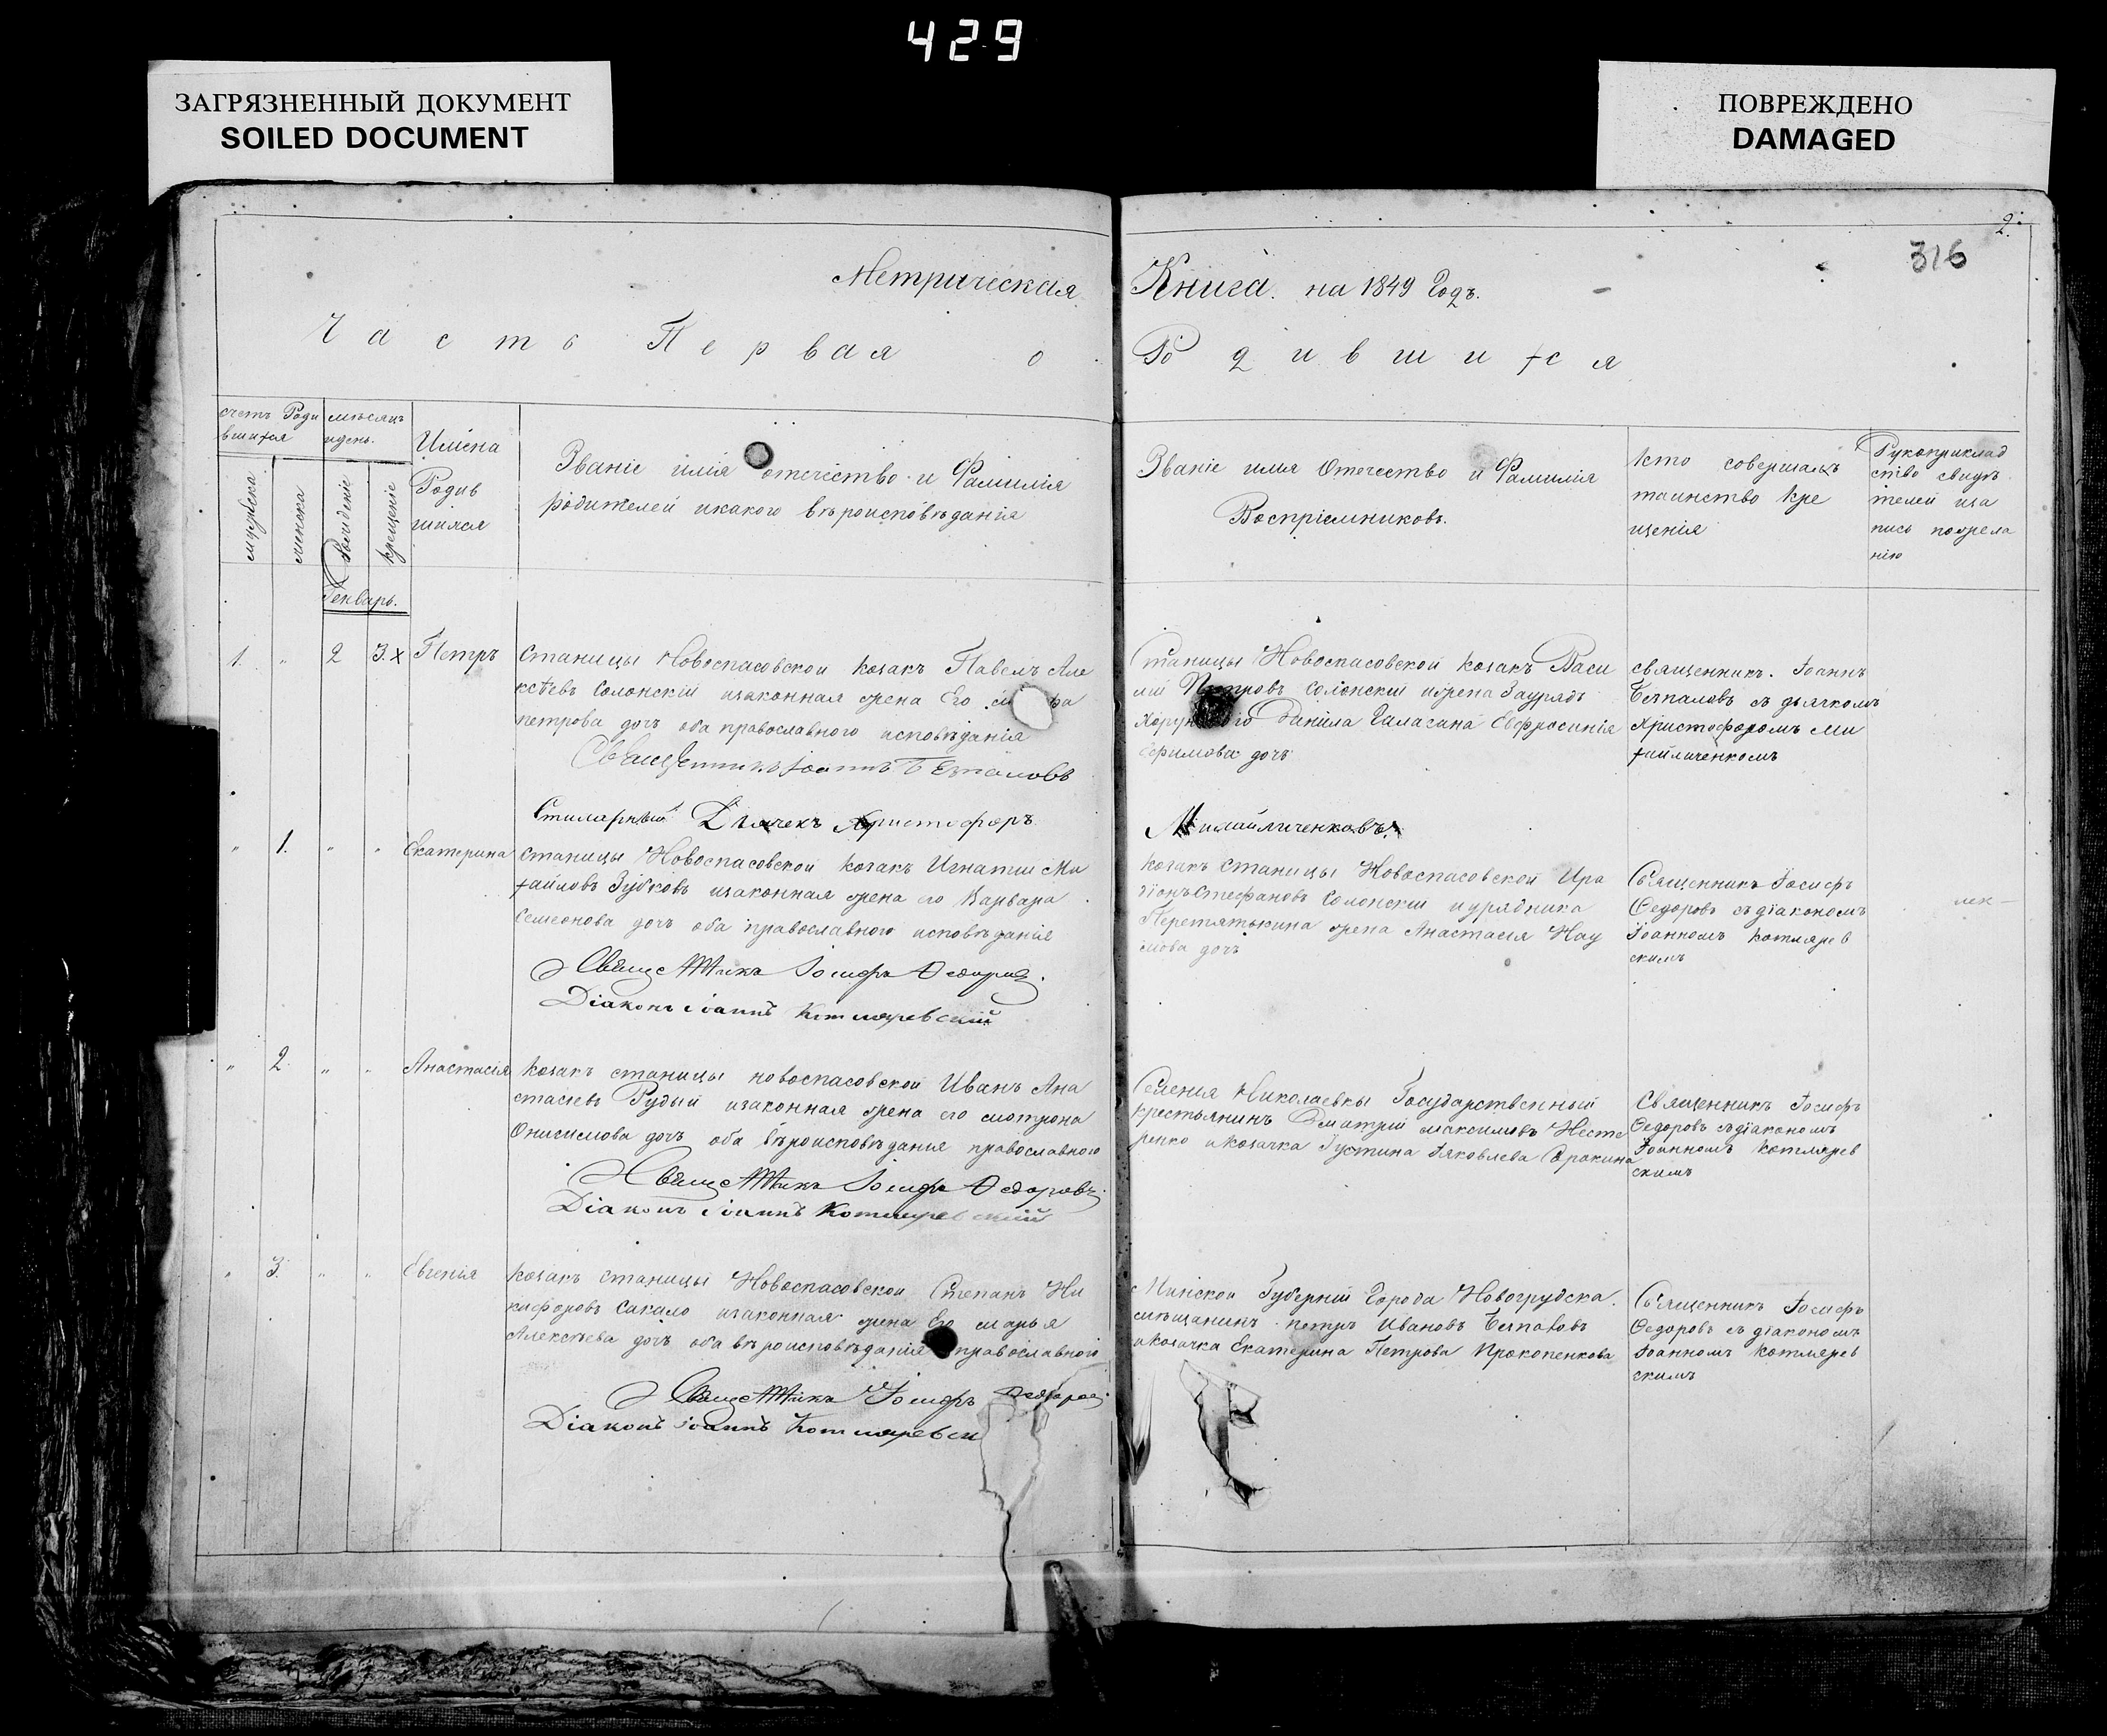 429
ЗАГРЯЗНЕННЫЙ ДОКУМЕНТ
SOILED DOCUMENT
ПОВРЕЖДЕНО
DAMAGED
2.
316
Метрическая Книга. на 1849 Годъ.
Часть Первая о Родившихся
счетъ Роди
вшихся
мѣсяцъ
идень.
Имена
Родив
шихся
Званіе имія отечество и Фамилія
родителей икакого вѣроисповѣданія
Званіе имя Отечество и Фамилія
Воспріемниковъ.
Кто совершалъ
таинство Кре
щенія
Рукоприклад
ство свидѣ
телей иза
пись пожела
нію
мужска
женска
Рожденіе
крещеніе
Генварь.
1. " 2 3.x Петръ
Станицы Новоспасовской козакъ Павелъ Але
ксѣевъ Солонскій изаконная жена Его
петрова дочъ оба православного исповѣданія
Священникъ Іоаннъ Безпаловъ
Станицы Новоспасовской козакъ Васи
лій Петровъ Солонскій ижена Заурядъ
Хорунжого Данила Галагана Евфросинія
Ефимова дочъ
священникъ. Іоаннъ
Безпаловъ съ дьячкомъ
Христофоромъ Ми
хайличенкомъ
Дьячекъ Христофоръ Михайличенковъ.
" 1. " " Екатерина
станицы Новоспасовской козакъ Игнатии Ми
хайловъ Зубковъ изаконная жена его Варвара
Семеонова дочъ оба православного исповѣданія
Священникъ Іосифъ Ѳедоровъ.
Діаконъ Іоаннъ Котляревскій
козакъ станицы Новоспасовской Ира
Стефановъ Солонскій иурядника
Перетятькина жена Анастасія Нау
мова дочъ
Священникъ Іосифъ
Ѳедоровъ съдіакономъ
Іоанномъ Котлярев
скимъ
" 2. " " Анастасія
козакъ станицы новоспасовской Иванъ Ана
стасіевъ Рудый изаконная жена его мотрона
Онисимова дочъ оба вѣроисповѣдания православного
Священникъ Іосифъ Ѳедоровъ.
Діаконъ Іоаннъ Котляревскій
Селения Николаевкы Государственный
крестьянинъ Дмитрий максимовъ Несте
ренко икозачка Іустина Іяковлева Сорокина
Священникъ Іосифъ
Ѳедоровъ съдіакономъ
Іоанномъ котлярев
скимъ
" 3. " " Евгенія
козакъ станицы Новоспасовской Степанъ Ни
кифоровъ Сакало изаконная жена Его марья
Алексѣева дочъ оба вѣроисповѣданія православного
Священникъ Іосифъ Ѳедоровъ
Діаконъ Іоаннъ Котляревск
Минской Губерніи Города Новогрудска.
мѣщанинъ петръ Ивановъ Безпаловъ
икозачка Екатерина Петрова Прокопенкова
Священникъ Іосифъ
Ѳедоровъ съ діакономъ
Іоанномъ котлярев
скимъ